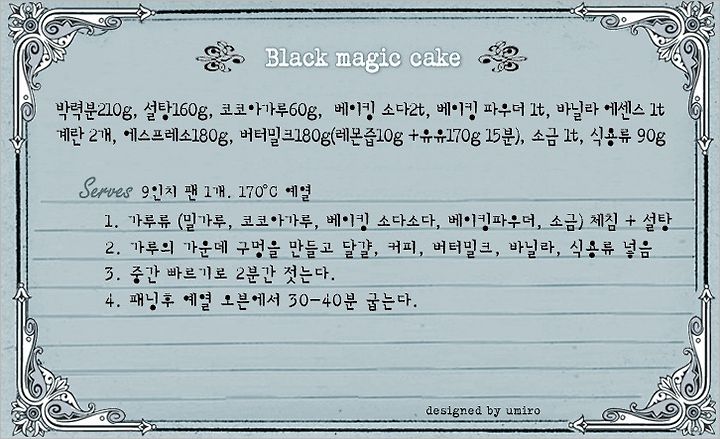 Black magic cake
박력분210g, 설탕160g, 코코아가루60g, 베이킹 소다2t, 베이킹 파우더 1t, 바닐라 에센스 1t
계란 2개, 에스프레소180g, 버터밀크180g(레몬즙10g +유유170g 15분), 소금 1t, 식용류 90g
Serves 9인치 팬 1개. 170°C 예열
1. 가루류 (밀가루, 코코아가루, 베이킹 소다소다, 베이킹파우더, 소금) 체침 + 설탕
2. 가루의 가운데 구멍을 만들고 달걀, 커피, 버터밀크, 바닐라, 식용류 넣음
3. 중간 빠르기로 2분간 젓는다.
4. 패닝후 예열 오븐에서 30-40분 굽는다.
designed by umiro